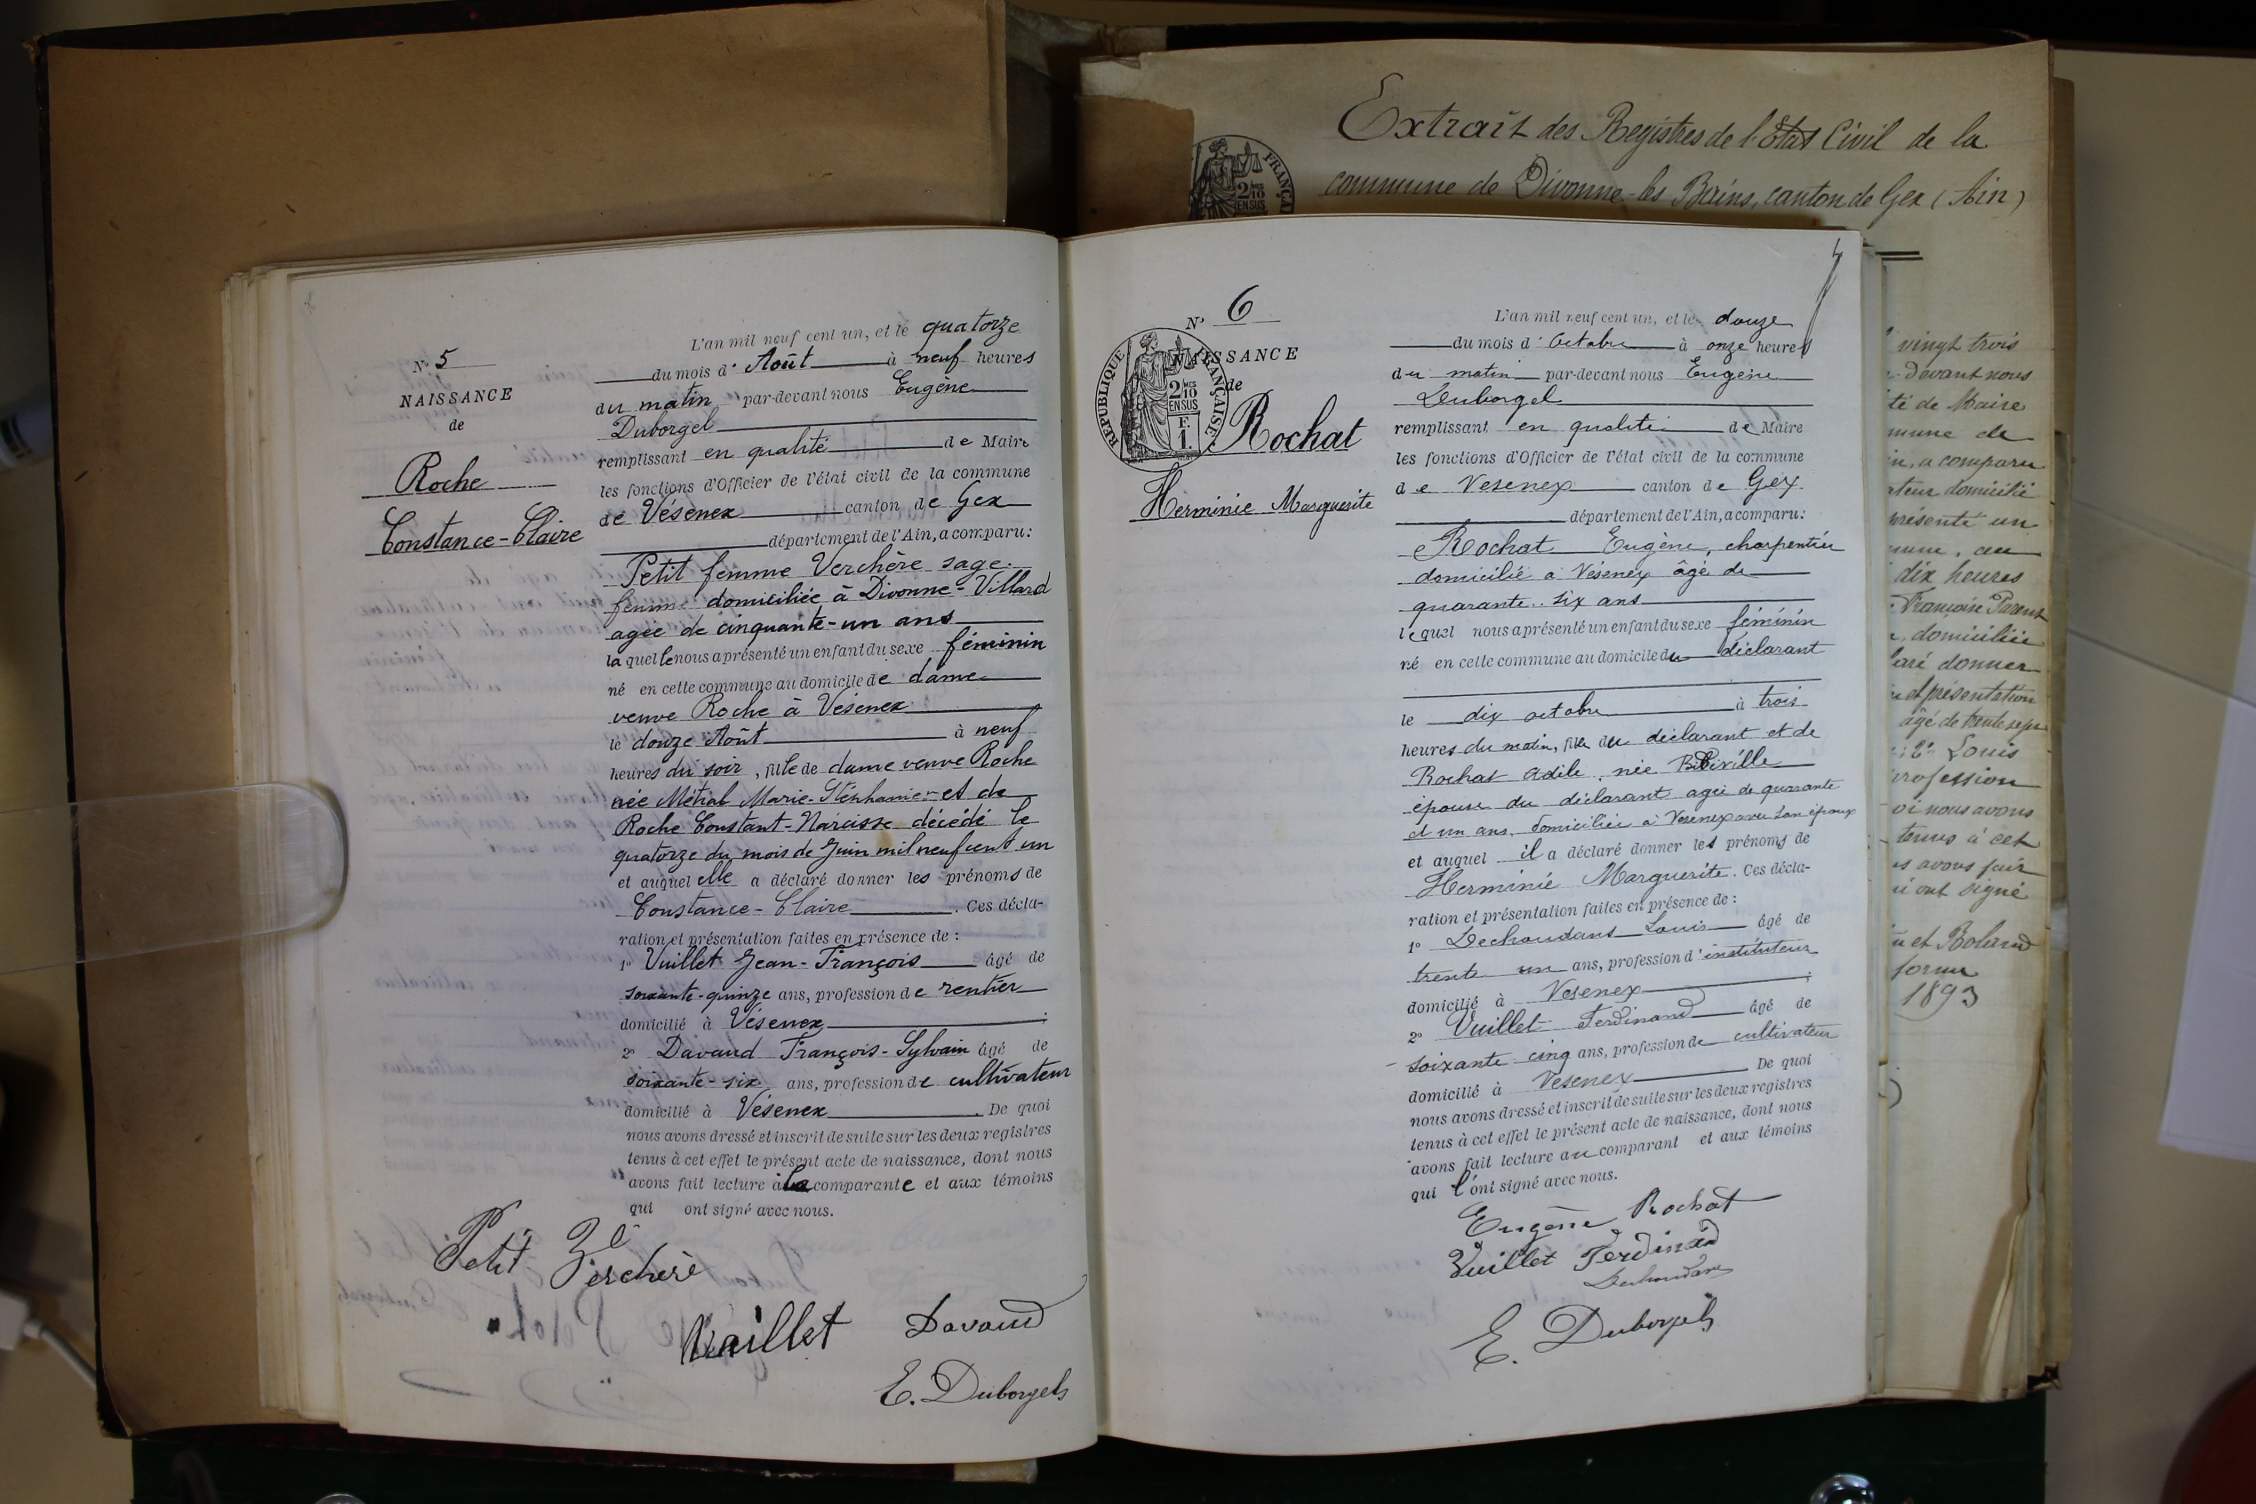 Extrait des Registres de l'Etat Civil de la
commune de Divonne-les Bains, canton de Gex (Ain)
FRANÇAI
2
EN SUS
N° 5
NAISSANCE
de
Roche
Constance-Claire
L'an mil neuf cent un, et le quatorze
du mois d' Août à neuf heures
du matin par-devant nous Eugène
Duborgel
remplissant en qualité de Maire
les fonctions d'Officier de l'état civil de la commune
de Vésenex canton de Gex
département de l'Ain, a comparu:
Petit femme Verchère sage-
femme domiciliée à Divonne-Villard
agée de cinquante-un ans
la quelle nous a présenté un enfant du sexe féminin
né en cette commune au domicile de dame
veuve Roche à Vésenex
le douze Août à neuf
heures du soir, fille de dame veuve Roche
née Métral Marie-Stéphanie et de
Roche Constant-Narcisse décédé le
quatorze du mois de Juin mil neuf cent un
et auquel elle a déclaré donner les prénoms de
Constance-Claire. Ces décla-
ration et présentation faites en présence de :
1° Vuillet Jean-François âgé de
soixante-quinze ans, profession de rentier
domicilié à Vésenex ;
2° Davaud François-Sylvain âgé de
soixante-six ans, profession de cultivateur
domicilié à Vésenex. De quoi
nous avons dressé et inscrit de suite sur les deux registres
tenus à cet effet le présent acte de naissance, dont nous
avons fait lecture à la comparante et aux témoins
qui ont signé avec nous.
Petit
Vuillet Davaud
E. Duborgel
N° 6
REPUBLIQUE FRANÇAISE
2/10
EN SUS
F.
1.
NAISSANCE
de
Rochat
Herminie Marguerite
L'an mil neuf cent un, et le douze
du mois d' Octobre à onze heures
du matin par-devant nous Eugène
Duborgel
remplissant en qualité de Maire
les fonctions d'Officier de l'état civil de la commune
de Vesenex canton de Gex
département de l'Ain, a comparu:
Rochat Eugène, charpentier
domicilié à Vésenex âgé de
quarante-six ans
lequel nous a présenté un enfant du sexe féminin
né en cette commune au domicile du déclarant
le dix octobre à trois
heures du matin, fille du déclarant et de
Rochat Adèle, née
épouse du déclarant agée de quarante
et un ans, domiciliée à Vésenex avec son époux
et auquel il a déclaré donner les prénoms de
Herminie Marguerite. Ces décla-
ration et présentation faites en présence de :
1° Dechoudans Louis âgé de
trente un ans, profession d'instituteur
domicilié à Vesenex ;
2° Vuillet Ferdinand âgé de
soixante-cinq ans, profession de cultivateur
domicilié à Vesenex De quoi
nous avons dressé et inscrit de suite sur les deux registres
tenus à cet effet le présent acte de naissance, dont nous
avons fait lecture au comparant et aux témoins
qui l'ont signé avec nous.
Eugène Rochat
Vuillet Ferdinand
E. Duborgel
vingt trois
devant nous
té de Maire
mune de
a comparu
ateur domicilié
présenté un
au
dix heures
Françoise
domiciliée
aré donner
et présentation
âgé de trente sept
2° Louis
profession
oi nous avons
tenus à cet
s avons fait
ont signé
et Roland
forme
1893